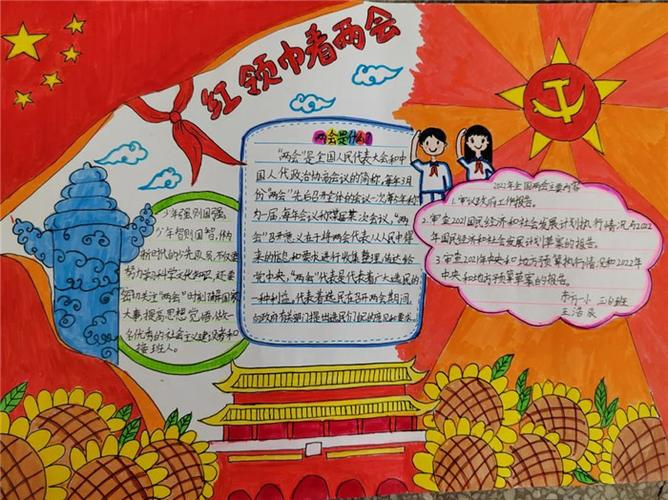 红领巾看两会
两会是什么?
"两会"是全国人民代表大会和中
国人代政治协商会议的简称,每年3月
份"两会"先后召开全体的会议一次每5年称
为一届,每年会议称某届某次会议,"两
会"召开意义在于将两会代表从人民中得
来的信息和要求进行收集整理,传达给
党中央,"两会"代表是代表着广大选民的
一种利益,代表着选民在召开两会期间,
向政府有关部门提出选民们自己的意见和要求。
少年强则国强,
少年智则国智,做
新时代的少先队员,不仅要
努力学习科学文化知识,还要
密切关注"两会"时刻了解国家
大事,提高思想觉悟,做一
名优秀的社会主义建设者和
接班人。
2022年全国两会主要内容
1.审议政府工作报告。
2.审查2021国民经济和社会发展计划执行情况与2022
年国民经济和社会发展计划草案的报告。
3.审查2021年中央和地方预算执行情况和2022年
中央和地方预算草案的报告。
王浩辰